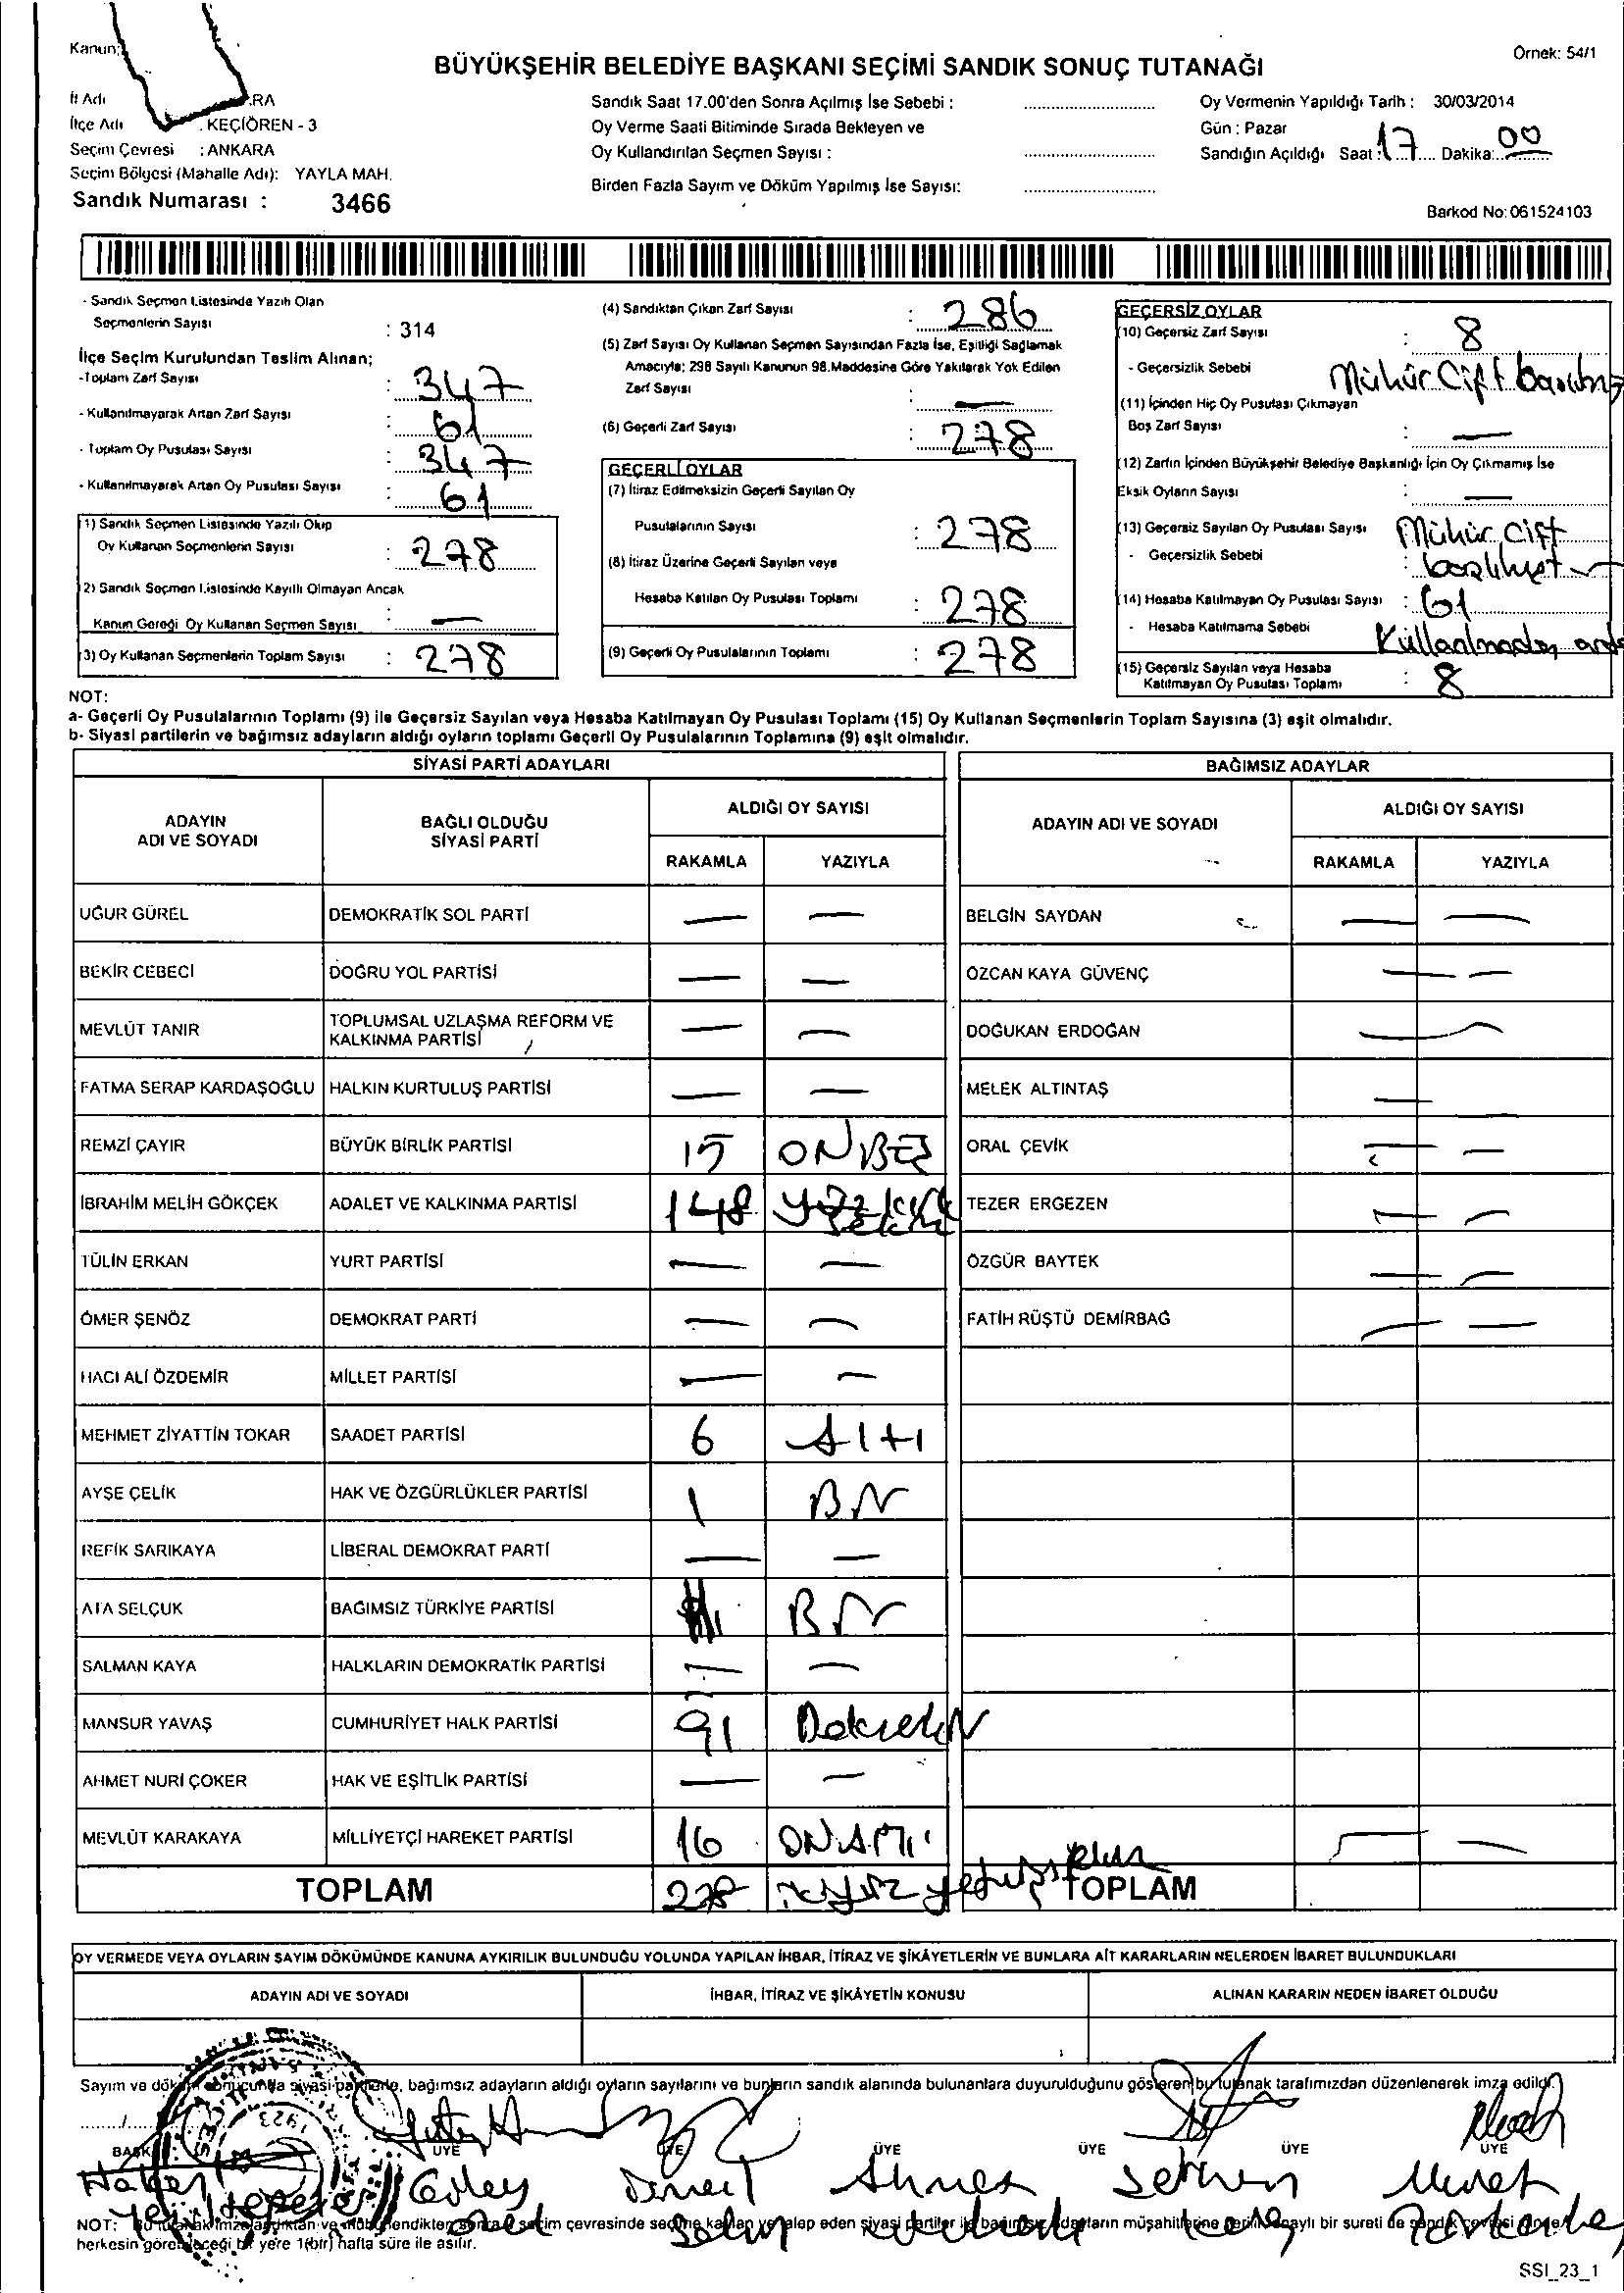 Kanun:
Örnek: 54/1
BÜYÜKŞEHİR BELEDİYE BAŞKANI SEÇİMİ SANDIK SONUÇ TUTANAĞI
İl Adı RA
İlçe Adı : KEÇİÖREN - 3
Seçim Çevresi : ANKARA
Seçim Bölgesi (Mahalle Adı): YAYLA MAH.
Sandık Numarası : 3466
Sandık Saat 17.00'den Sonra Açılmış İse Sebebi :
Oy Verme Saati Bitiminde Sırada Bekleyen ve
Oy Kullandırılan Seçmen Sayısı :
Birden Fazla Sayım ve Döküm Yapılmış İse Sayısı:
Oy Vermenin Yapıldığı Tarih : 30/03/2014
Gün : Pazar
Sandığın Açıldığı Saat : 17 Dakika: 00
Barkod No: 061524103
- Sandık Seçmen Listesinde Yazılı Olan
Seçmenlerin Sayısı : 314
İlçe Seçim Kurulundan Teslim Alınan;
-Toplam Zarf Sayısı : 347
- Kullanılmayarak Artan Zarf Sayısı : 61
- Toplam Oy Pusulası Sayısı : 347
- Kullanılmayarak Artan Oy Pusulası Sayısı : 61
(1) Sandık Seçmen Listesinde Yazılı Olup
Oy Kullanan Seçmenlerin Sayısı : 278
2) Sandık Seçmen Listesinde Kayıtlı Olmayan Ancak
Kanun Gereği Oy Kullanan Seçmen Sayısı : —
(3) Oy Kullanan Seçmenlerin Toplam Sayısı : 278
(4) Sandıktan Çıkan Zarf Sayısı : 286
(5) Zarf Sayısı Oy Kullanan Seçmen Sayısından Fazla İse, Eşitliği Sağlamak
Amacıyla; 298 Sayılı Kanunun 98.Maddesine Göre Yakılarak Yok Edilen
Zarf Sayısı : —
(6) Geçerli Zarf Sayısı : 278
GEÇERLİ OYLAR
(7) İtiraz Edilmeksizin Geçerli Sayılan Oy
Pusulalarının Sayısı : 278
(8) İtiraz Üzerine Geçerli Sayılan veya
Hesaba Katılan Oy Pusulası Toplamı : 278
(9) Geçerli Oy Pusulalarının Toplamı : 278
GEÇERSİZ OYLAR
(10) Geçersiz Zarf Sayısı : 8
- Geçersizlik Sebebi Mühür Çift
(11) İçinden Hiç Oy Pusulası Çıkmayan
Boş Zarf Sayısı : —
(12) Zarfın İçinden Büyükşehir Belediye Başkanlığı İçin Oy Çıkmamış İse
Eksik Oyların Sayısı : —
(13) Geçersiz Sayılan Oy Pusulası Sayısı Mühür Çift
- Geçersizlik Sebebi :
(14) Hesaba Katılmayan Oy Pusulası Sayısı : 61
- Hesaba Katılmama Sebebi
(15) Geçersiz Sayılan veya Hesaba
Katılmayan Oy Pusulası Toplamı : 8
NOT:
a- Geçerli Oy Pusulalarının Toplamı (9) ile Geçersiz Sayılan veya Hesaba Katılmayan Oy Pusulası Toplamı (15) Oy Kullanan Seçmenlerin Toplam Sayısına (3) eşit olmalıdır.
b- Siyasi partilerin ve bağımsız adayların aldığı oyların toplamı Geçerli Oy Pusulalarının Toplamına (9) eşit olmalıdır.
SİYASİ PARTİ ADAYLARI
ADAYIN
ADI VE SOYADI
BAĞLI OLDUĞU
SİYASİ PARTİ
ALDIĞI OY SAYISI
RAKAMLA YAZIYLA
UĞUR GÜREL DEMOKRATİK SOL PARTİ — —
BEKİR CEBECİ DOĞRU YOL PARTİSİ — —
MEVLÜT TANIR TOPLUMSAL UZLAŞMA REFORM VE
KALKINMA PARTİSİ — —
FATMA SERAP KARDAŞOĞLU HALKIN KURTULUŞ PARTİSİ — —
REMZİ ÇAYIR BÜYÜK BİRLİK PARTİSİ 15 ONBEŞ
İBRAHİM MELİH GÖKÇEK ADALET VE KALKINMA PARTİSİ 148
TÜLİN ERKAN YURT PARTİSİ — —
ÖMER ŞENÖZ DEMOKRAT PARTİ — —
HACI ALİ ÖZDEMİR MİLLET PARTİSİ — —
MEHMET ZİYATTİN TOKAR SAADET PARTİSİ 6 Altı
AYŞE ÇELİK HAK VE ÖZGÜRLÜKLER PARTİSİ 1 BİR
REFİK SARIKAYA LİBERAL DEMOKRAT PARTİ — —
ATA SELÇUK BAĞIMSIZ TÜRKİYE PARTİSİ 1 BİR
SALMAN KAYA HALKLARIN DEMOKRATİK PARTİSİ — —
MANSUR YAVAŞ CUMHURİYET HALK PARTİSİ 91
AHMET NURİ ÇOKER HAK VE EŞİTLİK PARTİSİ — —
MEVLÜT KARAKAYA MİLLİYETÇİ HAREKET PARTİSİ 16 ONALTI
TOPLAM 278
BAĞIMSIZ ADAYLAR
ADAYIN ADI VE SOYADI
ALDIĞI OY SAYISI
RAKAMLA YAZIYLA
BELGİN SAYDAN — —
ÖZCAN KAYA GÜVENÇ — —
DOĞUKAN ERDOĞAN — —
MELEK ALTINTAŞ — —
ORAL ÇEVİK — —
TEZER ERGEZEN — —
ÖZGÜR BAYTEK — —
FATİH RÜŞTÜ DEMİRBAĞ — —
TOPLAM
OY VERMEDE VEYA OYLARIN SAYIM DÖKÜMÜNDE KANUNA AYKIRILIK BULUNDUĞU YOLUNDA YAPILAN İHBAR, İTİRAZ VE ŞİKÂYETLERİN VE BUNLARA AİT KARARLARIN NELERDEN İBARET BULUNDUKLARI
ADAYIN ADI VE SOYADI
İHBAR, İTİRAZ VE ŞİKÂYETİN KONUSU
ALINAN KARARIN NEDEN İBARET OLDUĞU
Sayım ve döküm sonucunda siyasi partilerle, bağımsız adayların aldığı oyların sayılarını ve bunların sandık alanında bulunanlara duyurulduğunu gösteren bu tutanak tarafımızdan düzenlenerek imza edildi.
BAŞK ÜYE ÜYE ÜYE ÜYE ÜYE ÜYE
Hakan Ahmet Murat
NOT: Bu tutanak imzalandıktan ve mühürlendikten sonra seçim çevresinde seçime katılan ve talep eden siyasi partiler ile bağımsız adayların müşahitlerine onaylı bir sureti de sandık çevresi
herkesin görebileceği bir yere 1(bir) hafta süre ile asılır.
SSI_23_1